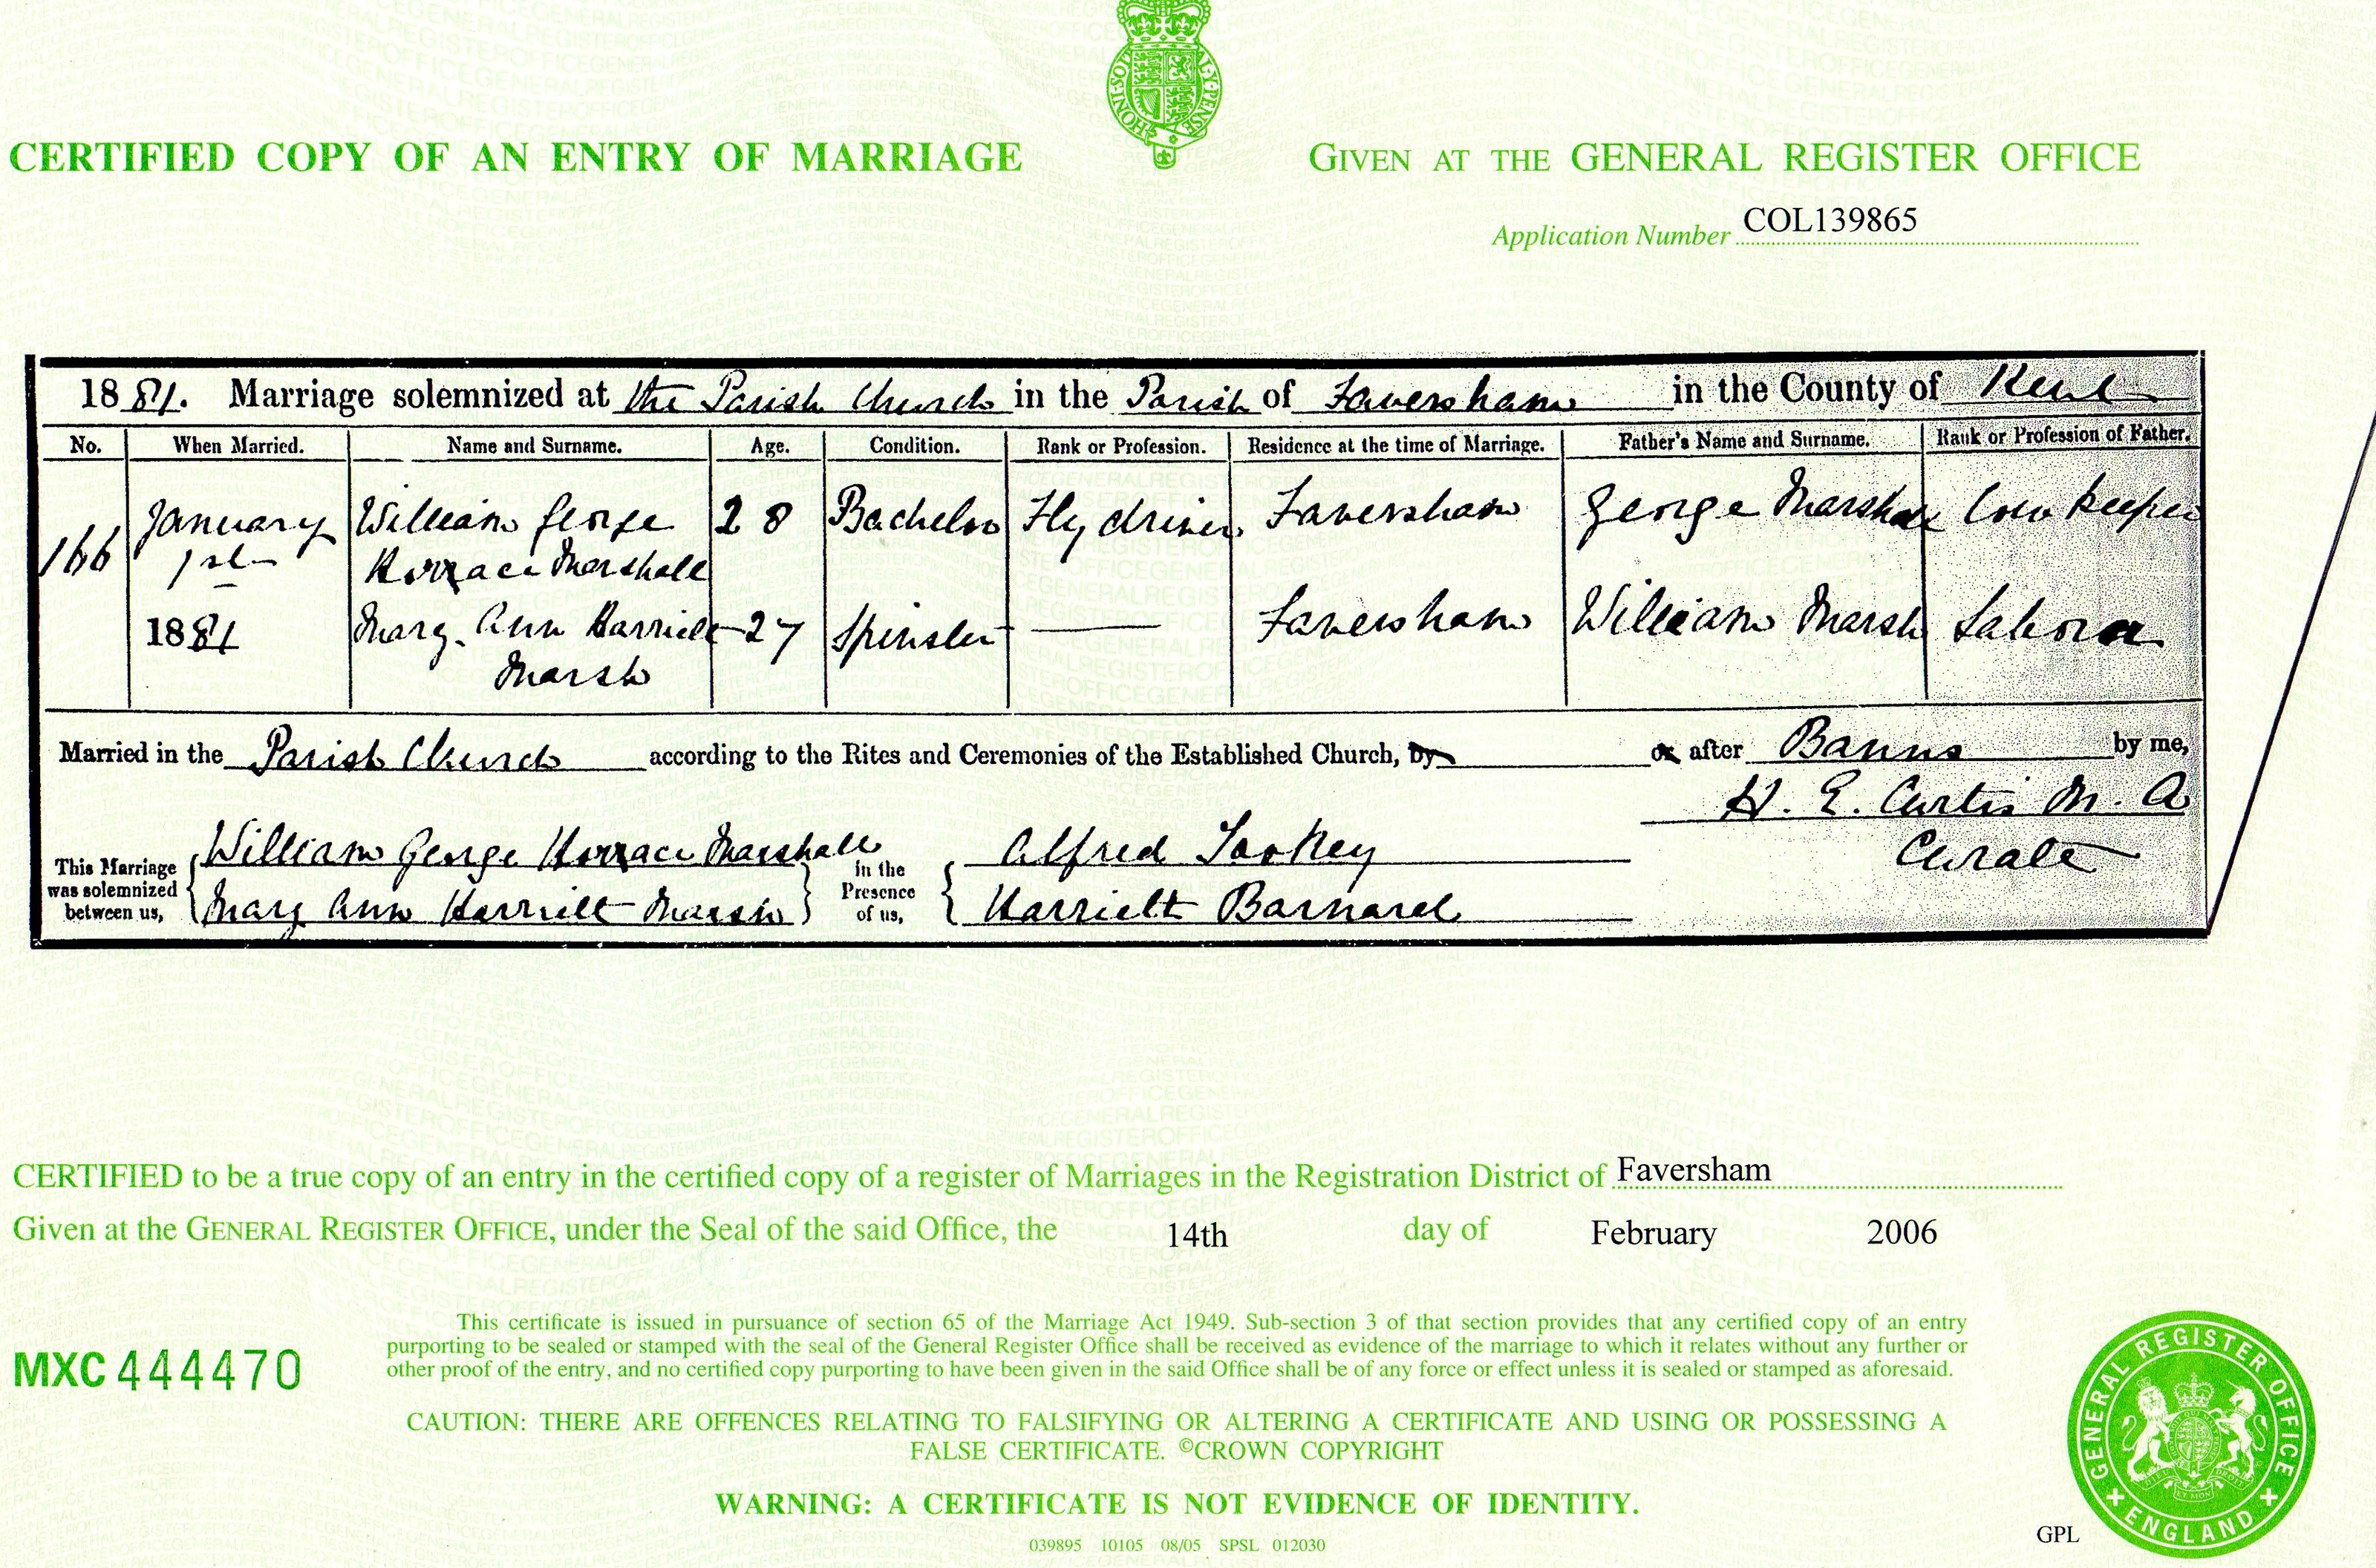 HONI·SOI AL·Y·PENSE
CERTIFIED COPY OF AN ENTRY OF MARRIAGE
GIVEN AT THE GENERAL REGISTER OFFICE
Application Number COL139865
1881. Marriage solemnized at the Parish Church in the Parish of Faversham in the County of Kent
No. When Married. Name and Surname. Age. Condition. Rank or Profession. Residence at the time of Marriage. Father's Name and Surname. Rank or Profession of Father.
January William George 28 Bachelor Fly driver Faversham George Marshall Cow keeper
166 1st Horrace Marshall
1881 Mary Ann Harriett 27 Spinster — Faversham William Marsh Labourer
Marsh
Married in the Parish Church according to the Rites and Ceremonies of the Established Church, by or after Banns by me,
H. E. Curtis M. A
Curate
This Marriage was solemnized between us, William George Horrace Marshall in the Presence of us, Alfred
Mary Ann Harriett Marsh Harriett Barnard
CERTIFIED to be a true copy of an entry in the certified copy of a register of Marriages in the Registration District of Faversham
Given at the GENERAL REGISTER OFFICE, under the Seal of the said Office, the 14th day of February 2006
This certificate is issued in pursuance of section 65 of the Marriage Act 1949. Sub-section 3 of that section provides that any certified copy of an entry
purporting to be sealed or stamped with the seal of the General Register Office shall be received as evidence of the marriage to which it relates without any further or
other proof of the entry, and no certified copy purporting to have been given in the said Office shall be of any force or effect unless it is sealed or stamped as aforesaid.
MXC 444470
CAUTION: THERE ARE OFFENCES RELATING TO FALSIFYING OR ALTERING A CERTIFICATE AND USING OR POSSESSING A
FALSE CERTIFICATE. ©CROWN COPYRIGHT
WARNING: A CERTIFICATE IS NOT EVIDENCE OF IDENTITY.
039895 10105 08/05 SPSL 012030
GPL
GENERAL REGISTER OFFICE
ENGLAND